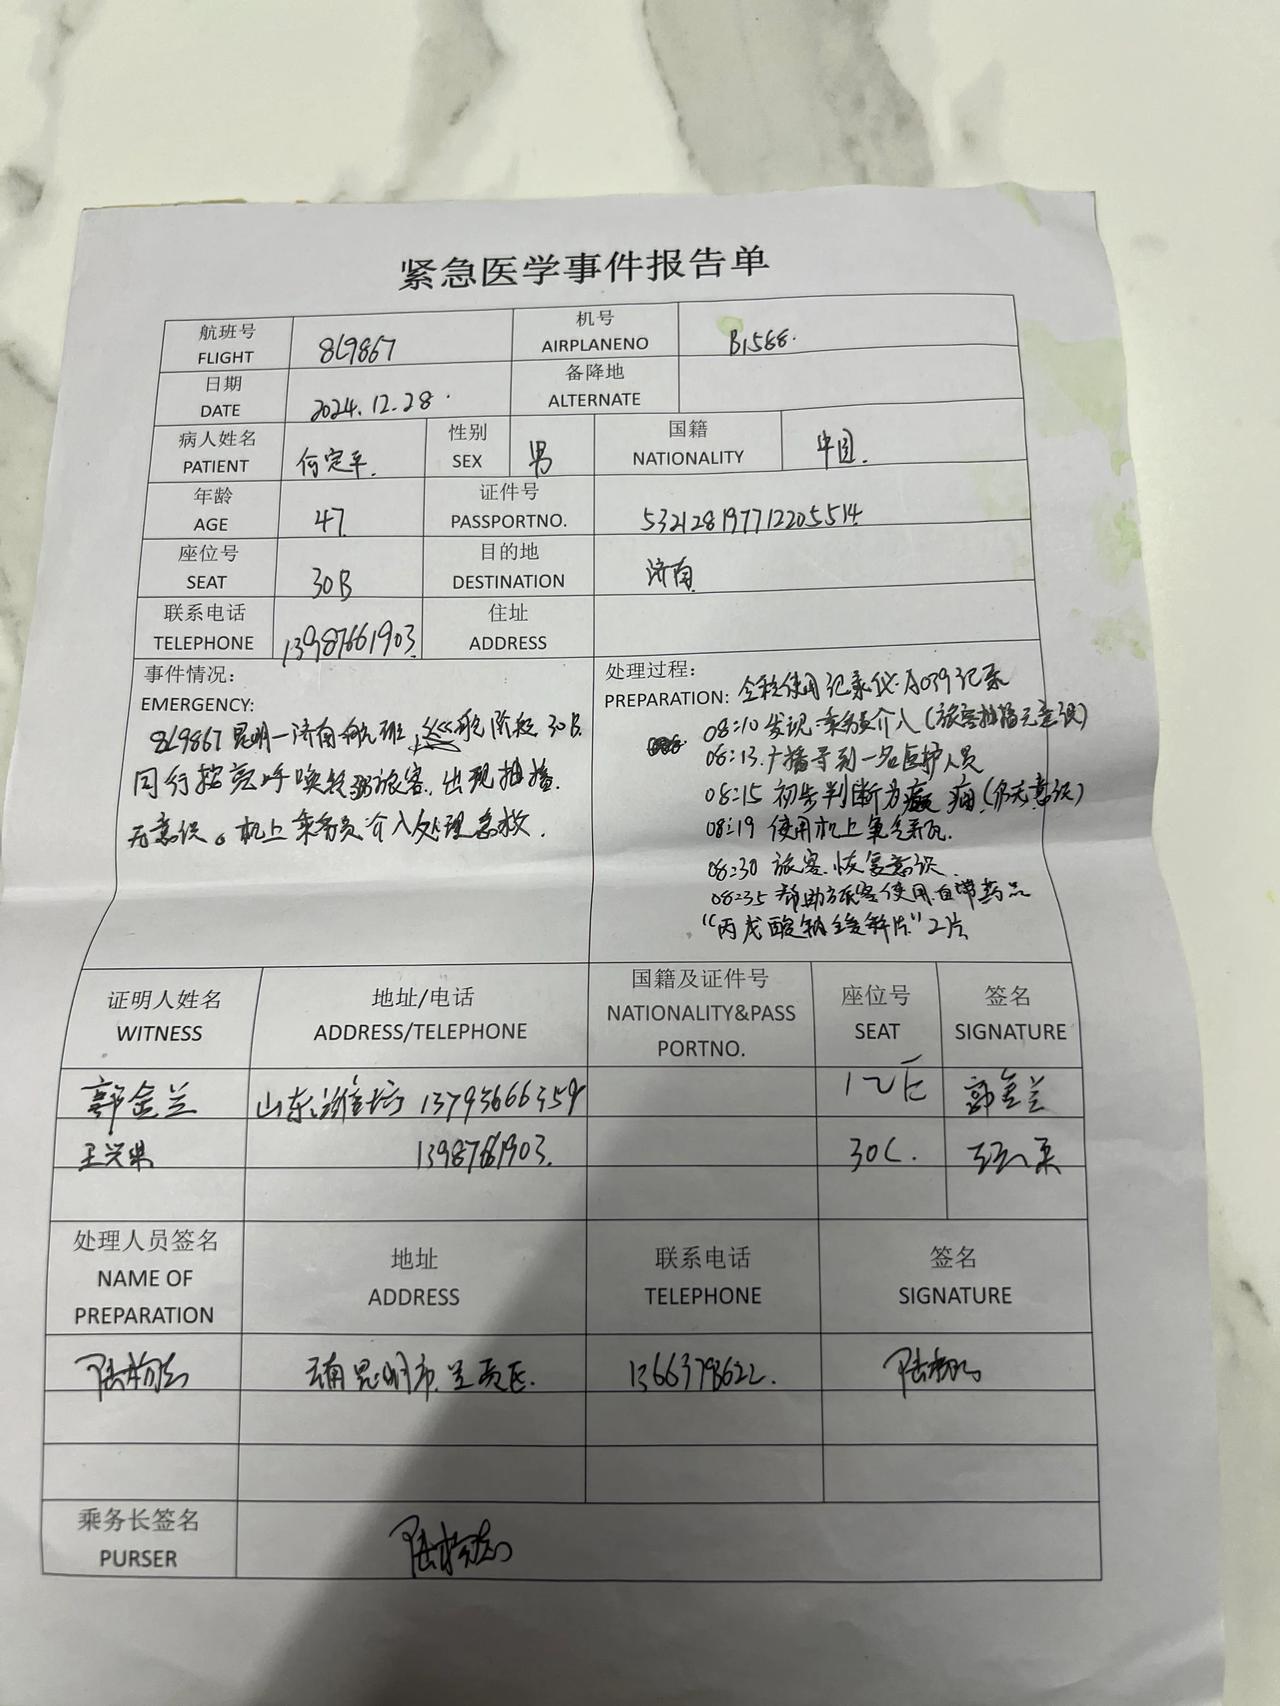 紧急医学事件报告单
航班号 FLIGHT 8L9867 机号 AIRPLANENO B1588.
日期 DATE 2024.12.28. 备降地 ALTERNATE
病人姓名 PATIENT 何定平. 性别 SEX 男 国籍 NATIONALITY 中国.
年龄 AGE 47. 证件号 PASSPORTNO. 532128197712205514
座位号 SEAT 30B 目的地 DESTINATION 济南
联系电话 TELEPHONE 13987661903. 住址 ADDRESS
事件情况:
EMERGENCY:
8L9867 昆明—济南航班 巡航阶段 30B
同行按铃呼唤 旅客. 出现抽搐.
无意识。机上乘务员介入处理急救.
处理过程:
PREPARATION: 全程使用记录仪 A039记录
08:10 发现.乘务员介入(旅客抽搐无意识)
08:13.广播寻到一名医护人员
08:15 初步判断为癫痫(仍无意识)
08:19 使用机上氧气瓶.
08:30 旅客.恢复意识.
08:35 帮助旅客使用自带药品
“丙戊酸钠缓释片”2片
证明人姓名 WITNESS 地址/电话 ADDRESS/TELEPHONE 国籍及证件号 NATIONALITY&PASSPORTNO. 座位号 SEAT 签名 SIGNATURE
郭金兰 山东潍坊 郭金兰
王兴 13987661903. 30C.
处理人员签名 NAME OF PREPARATION 地址 ADDRESS 联系电话 TELEPHONE 签名 SIGNATURE
云南昆明市.呈贡区. 13663798622.
乘务长签名 PURSER